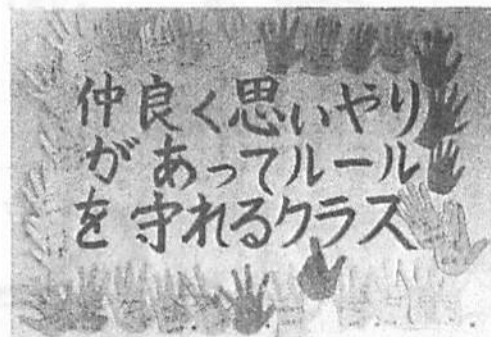 仲良く思いやり
があってルール
を守れるクラス